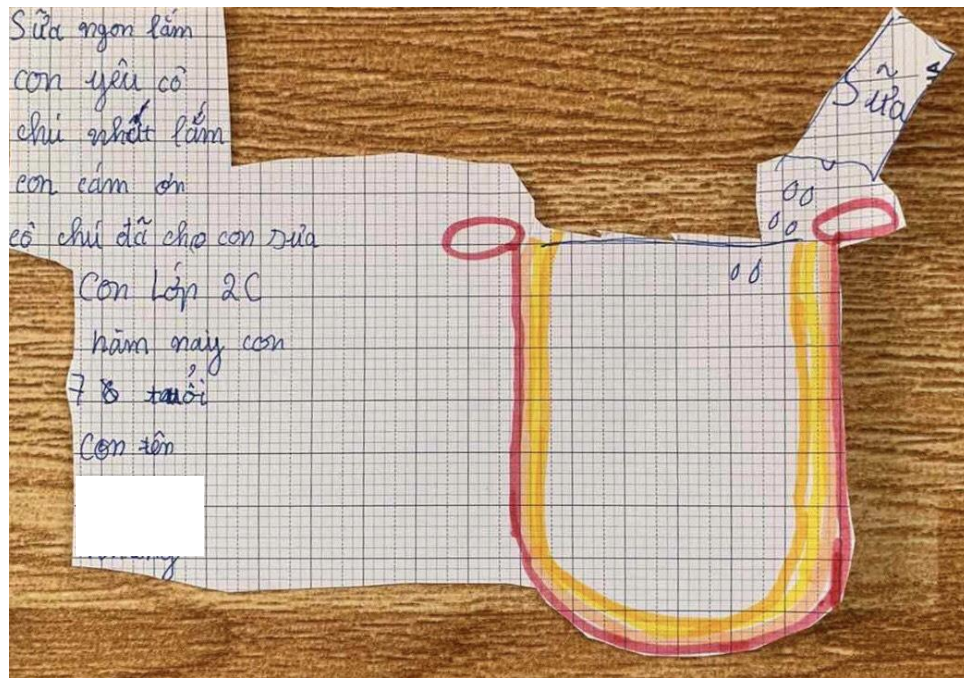 Sữa ngon lắm
con yêu cô
chú nhất lắm
con cám ơn
cô chú đã cho con sữa
Con Lớp 2C
năm nay con
7 tuổi
Con tên
Sữa